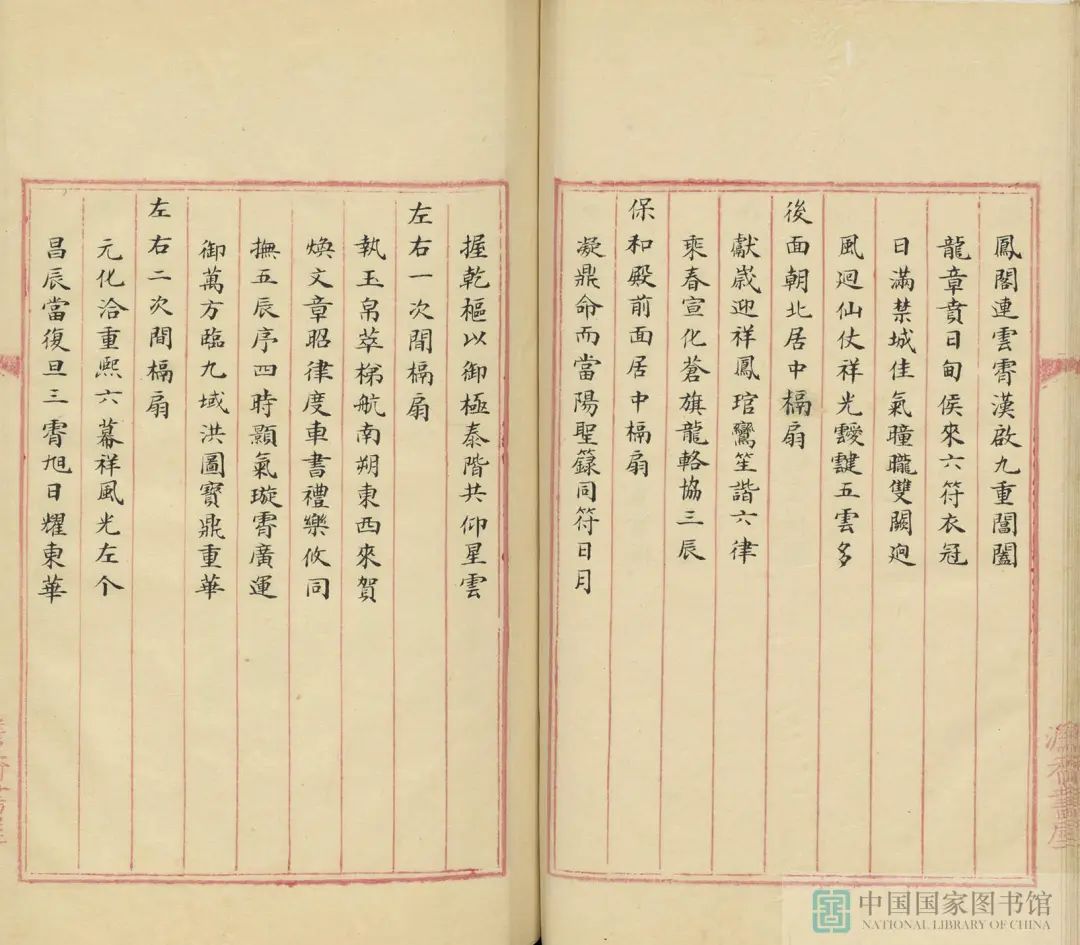 鳳閣連雲霄漢啟九重閶闔
龍章賁日甸侯來六符衣冠
日滿禁城佳氣曈曨雙闕迥
風迴仙仗祥光靉靆五雲多
後面朝北居中槅扇
獻歲迎祥鳳琯鸞笙諧六律
乘春宣化蒼旗龍輅協三辰
保和殿前面居中槅扇
凝鼎命而當陽聖籙同符日月
握乾樞以御極泰階共仰星雲
左右一次間槅扇
執玉帛萃梯航南朔東西來賀
煥文章昭律度車書禮樂攸同
撫五辰序四時顥氣璇霄廣運
御萬方臨九域洪圖寶鼎重華
左右二次間槅扇
元化洽重熙六幕祥風光左个
昌辰當復旦三霄旭日耀東華
中国国家图书馆
NATIONAL LIBRARY OF CHINA